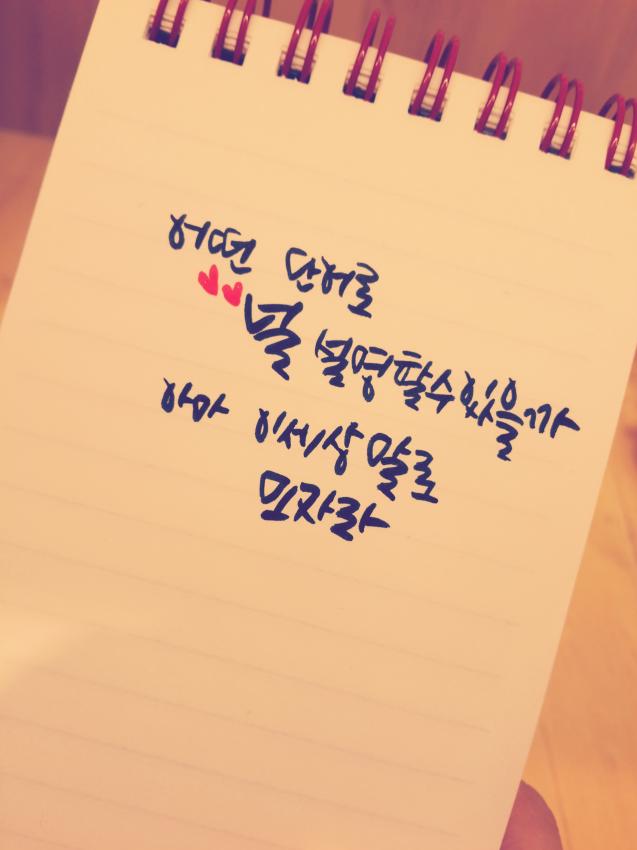 어떤 단어로
널 설명할수있을까
아마 이세상말로
모자라